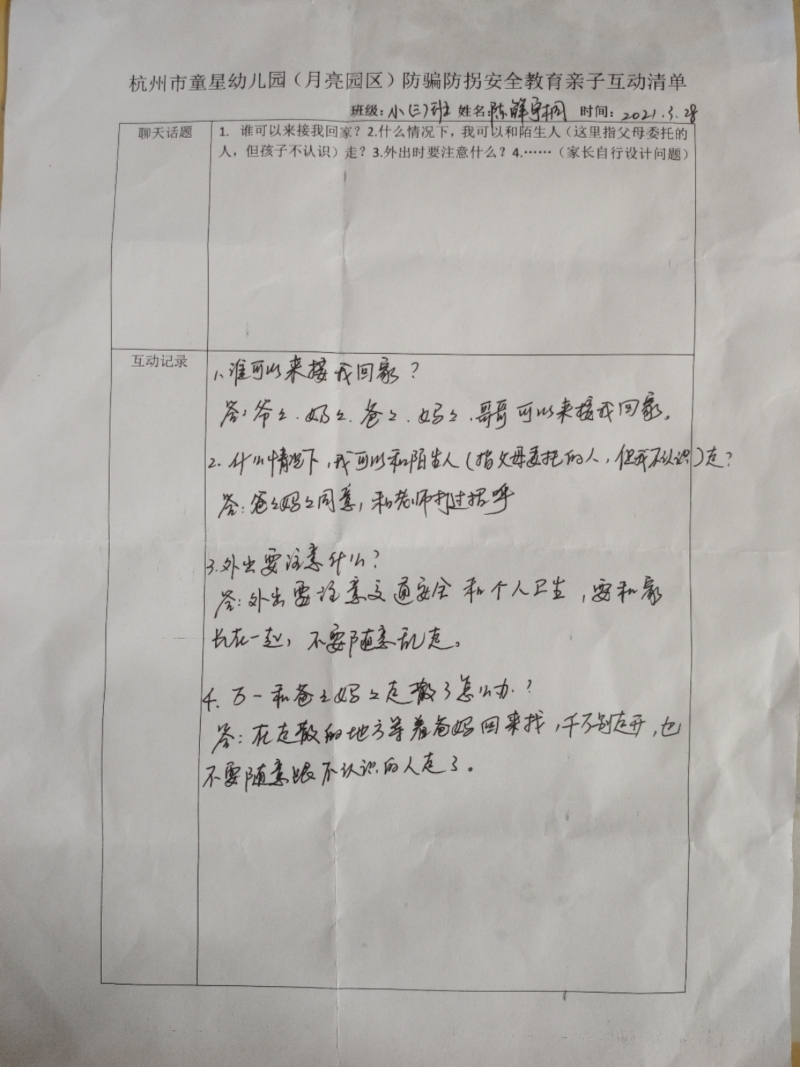 杭州市童星幼儿园（月亮园区）防骗防拐安全教育亲子互动清单
班级：小（三）班 姓名：陈 时间：2021.3.28
聊天话题
1. 谁可以来接我回家？2.什么情况下，我可以和陌生人（这里指父母委托的
人，但孩子不认识）走？3.外出时要注意什么？4.……（家长自行设计问题）
互动记录
1、谁可以来接我回家？
答：爷々、奶々、爸々、妈々、哥哥可以来接我回家。
2. 什么情况下，我可以和陌生人（指父母委托的人，但我不认识）走？
答：爸々妈々同意，和老师打过招呼
3.外出要注意什么？
答：外出要注意交通安全和个人卫生，要和家
长在一起，不要随意乱走。
4. 万一和爸々妈々走散了怎么办？
答：在走散的地方等着爸妈回来找，千万别走开，也
不要随意跟不认识的人走了。